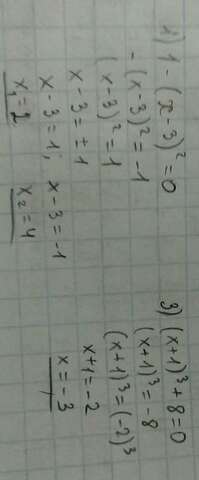 1) 1 - (x-3)² = 0
- (x-3)² = -1
(x-3)² = 1
x-3 = ±1
x-3 = 1; x-3 = -1
x₁=2 x₂=4
3) (x+1)³+8=0
(x+1)³=-8
(x+1)³=(-2)³
x+1=-2
x=-3